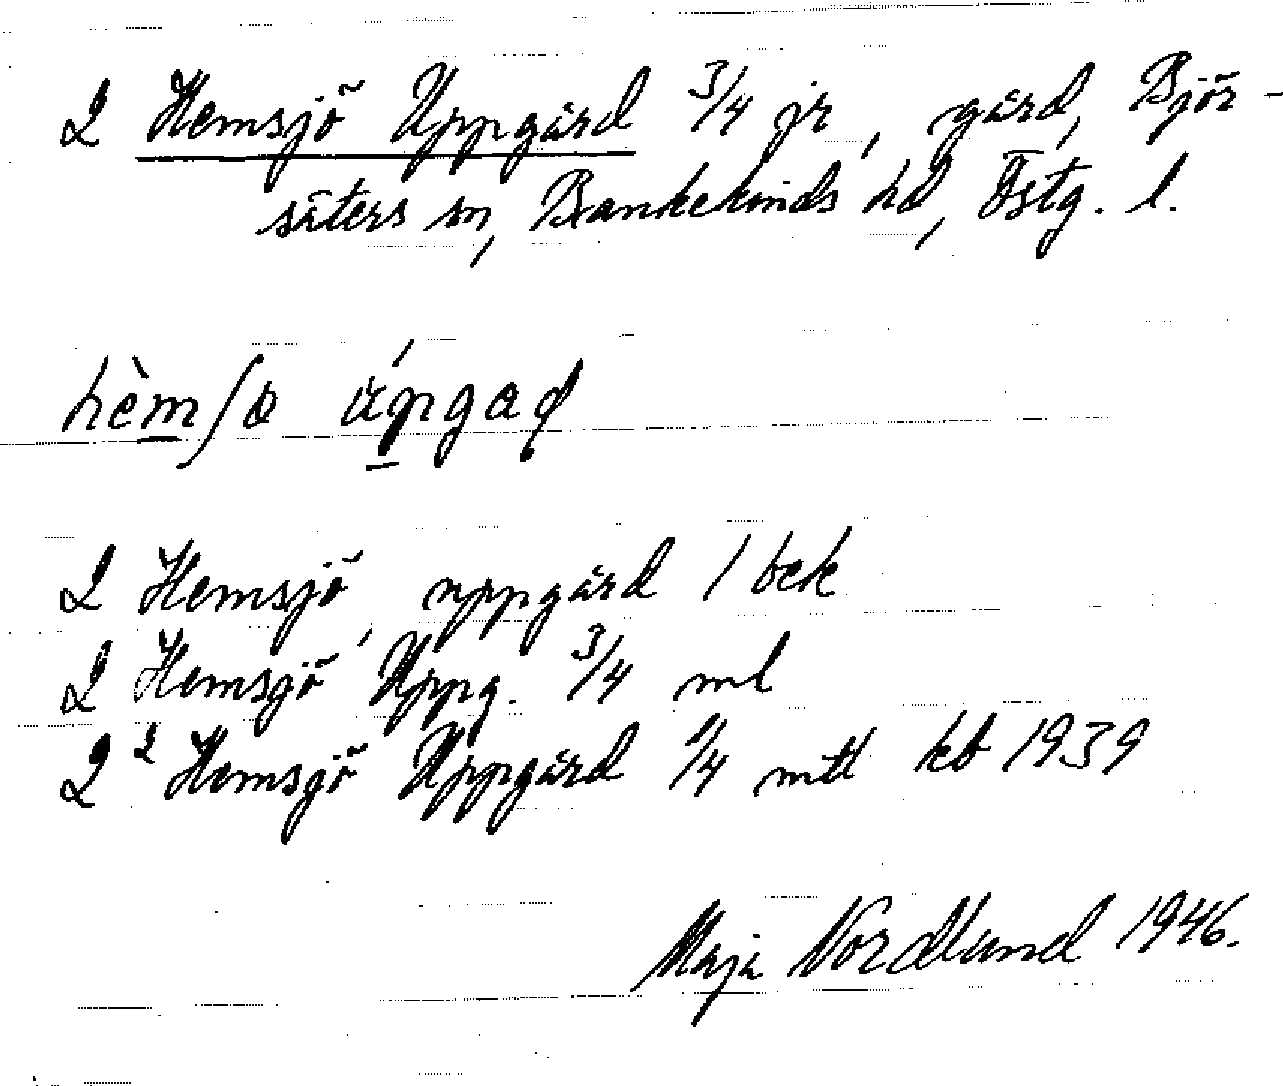 2 Hemsjö Uppgård 3/4 jr, gård, Björ-
säters sn, Bankekinds hd, Östg. l.
hèmʃɵ úpgaḍ
2 Hemsjö, uppgård 1 bek
2 Hemsgö Uppg. 3/4 ml
2² Hemsjö Uppgård 1/4 mtl kb 1939
Maja Nordlund 1946.